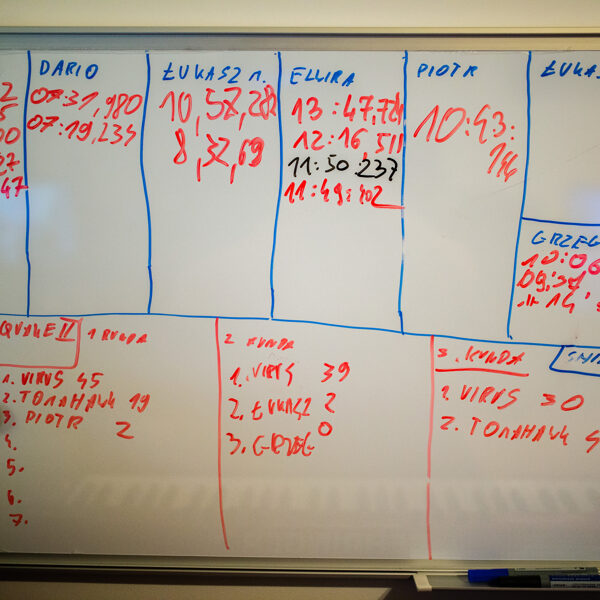 DARIO
07:31,980
07:19,234
ŁUKASZ M.
10,58,282
8,32,69
ELVIRA
13:47,724
12:16,511
11:50:237
11:49:402
PIOTR
10:43:
ŁUKA
GRZEG
10:06
47
QUAKE II
1 RUNDA
1. VIRUS 45
2. TOMAHAWK 19
3. PIOTR 2
4.
5.
6.
7.
2 RUNDA
1. VIRUS 39
2. ŁUKASZ 2
3. GRZEG 0
3. RUNDA
1. VIRUS 30
2. TOMAHAWK